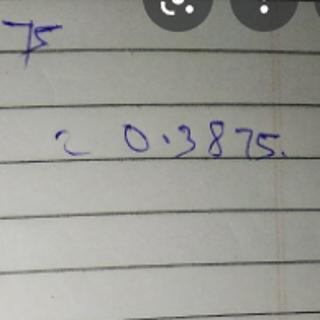 75
≈ 0.3875.